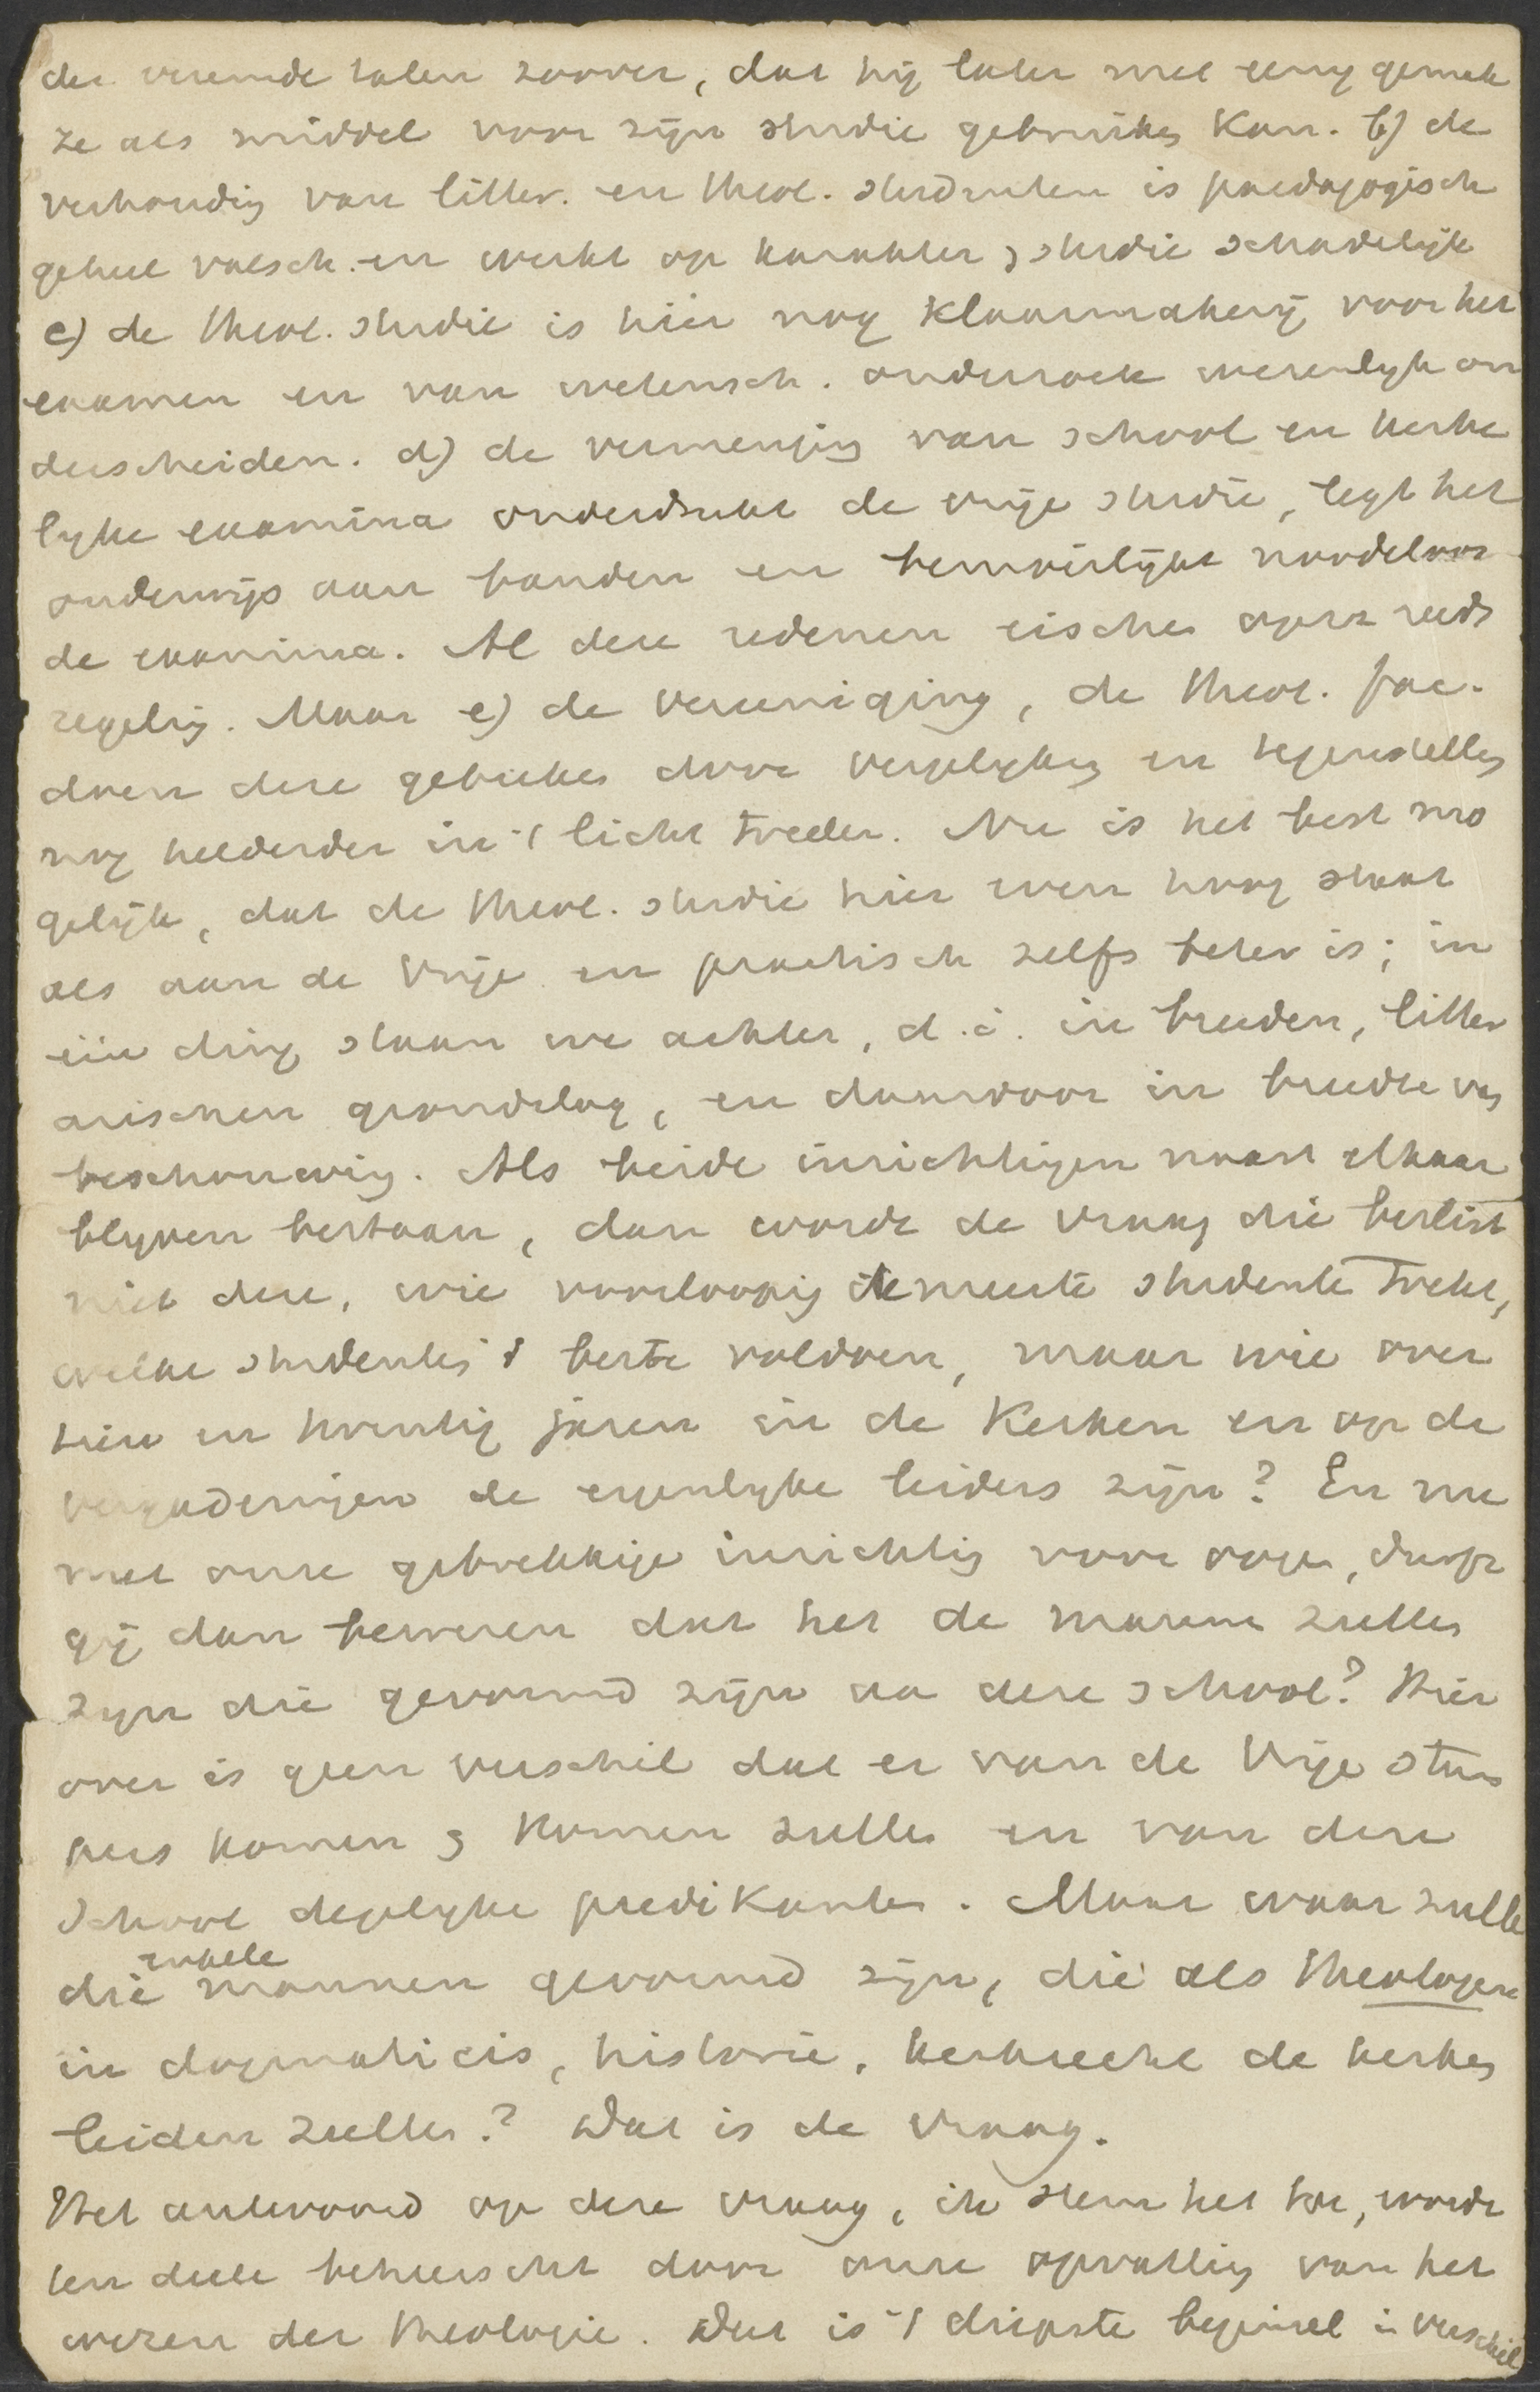 der vreemde talen zoover, dat hij later met eenig gemak
ze als middel voor zijn studie gebruiken kan. b) de
verhouding van litter. en theol. studenten is paedagogisch
geheel valsch en werkt op karakter & studie schadelijk
c) de theol. studie is hier nog klaarmakerij voor het
examen en van wetensch. onderzoek wezenlijk on
derscheiden. d) de vermenging van school en kerke
lijke examina onderdrukt de vrije studie, legt het
onderwijs aan banden en bemoeilijkt noodeloos
de examina. Al deze redenen eischen opzz reeds
regeling. Maar e) de vereeniging, de theol. fac.
doen deze gebreken door vergelijking en tegenstelling
nog helderder in 't licht treden. Nu is het best mo
gelijk, dat de theol. studie hier even hoog staat
als aan de Vrije en practisch zelfs beter is; in
één ding staan we achter, d.i. in breeden, litter
arischen grondslag, en daardoor in breedte van
beschouwing. Als beide inrichtingen naast elkaar
blijven bestaan, dan wordt de vraag die beslist
niet deze, wie voorloopig de meeste studenten trekt,
welke studenten 't beste voldoen, maar wie over
tien en twintig jaren in de Kerken en op de
vergaderingen de eigenlijke leiders zijn? En nu
met onze gebrekkige inrichting voor oogen, durft
gij dan beweren dat het de mannen zullen
zijn die gevormd zijn aa deze school? Hier
over is geen verschil dat er van de Vrije stum
pers komen & komen zullen en van deze
School degelijke predikanten. Maar waar zullen
enkele
die mannen gevormd zijn, die als theologen
in dogmaticis, historie, kerkrecht de kerken
leiden zullen? Dat is de vraag.
Het antwoord op deze vraag, ik stem het toe, wordt
ten deele beheerscht door onze opvatting van het
wezen der theologie. Dat is 't diepste beginsel in verschil